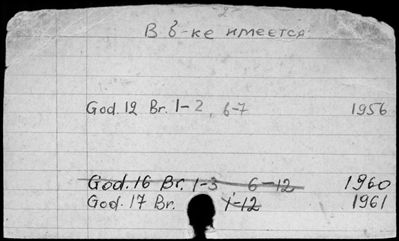 В б-ке имеется
God. 12 Br. 1-2, 6-7 1956
God. 16 Br. 1-3 6-12 1960
God. 17 Br. 1-12 1961